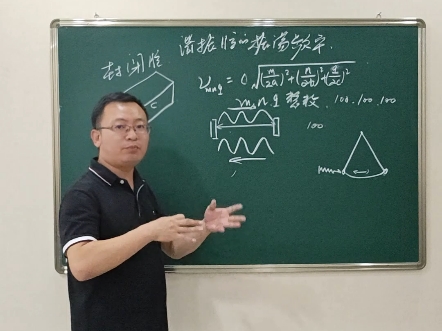 谐振腔的振荡频率.
封闭腔
ν_mnq = C√((m/2a)²+(n/2b)²+(q/2c)²)
c
m, n, q 整数 100.100.100
100